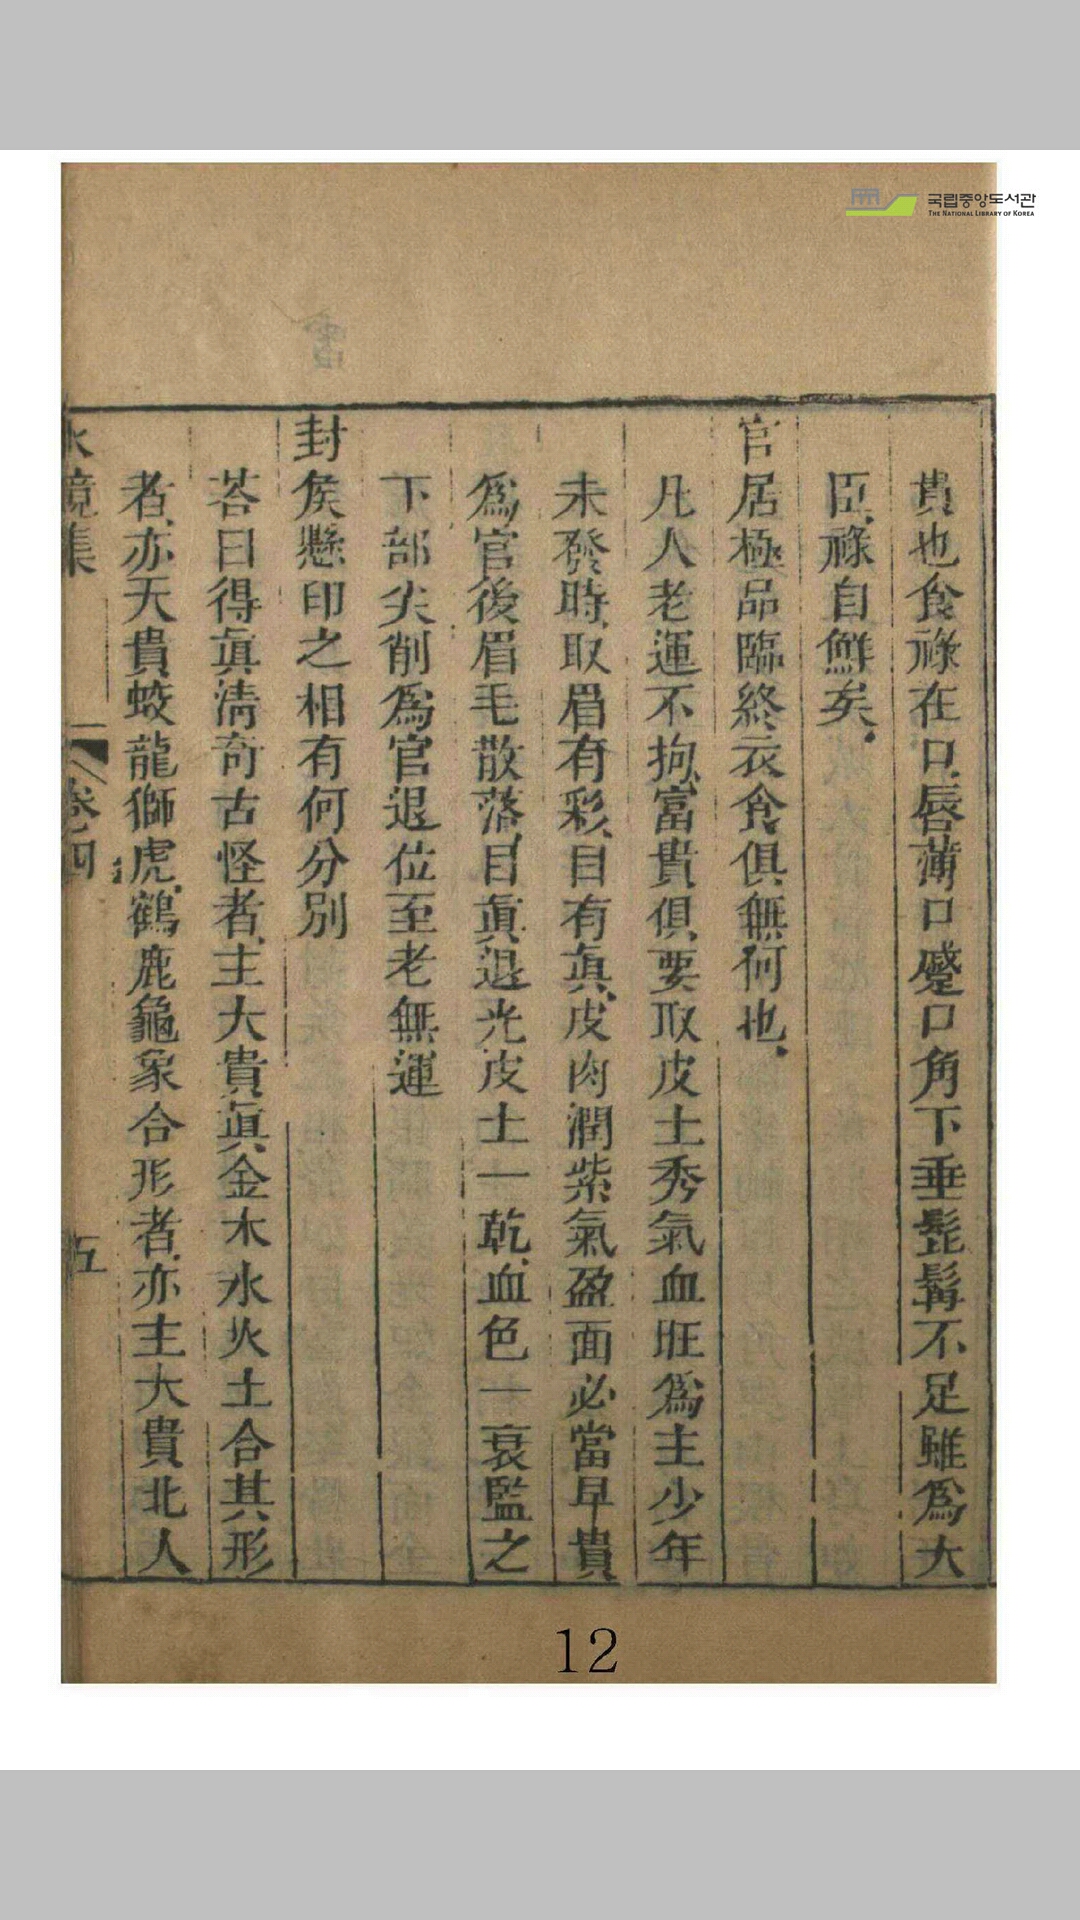 국립중앙도서관
THE NATIONAL LIBRARY OF KOREA
貴也食祿在口、唇薄口蹙口角下垂髭髯不足雖爲大
臣、祿自鮮矣、
官居極品臨終衣食俱無何也、
凡人老運不拘富貴俱要取皮土秀氣血旺爲主少年
未發時、取眉有彩、目有眞、皮肉潤紫氣盈面必當早貴
爲官後眉毛散落、目眞退光、皮土一乾、血色一衰監之
下部尖削爲官退位至老無運
封侯懸印之相有何分別
荅曰得眞清奇古怪者、主大貴眞金木水火土合其形
者、亦大貴蛟龍獅虎、鶴鹿龜象合形者、亦主大貴北人
水鏡集 卷四 五
12